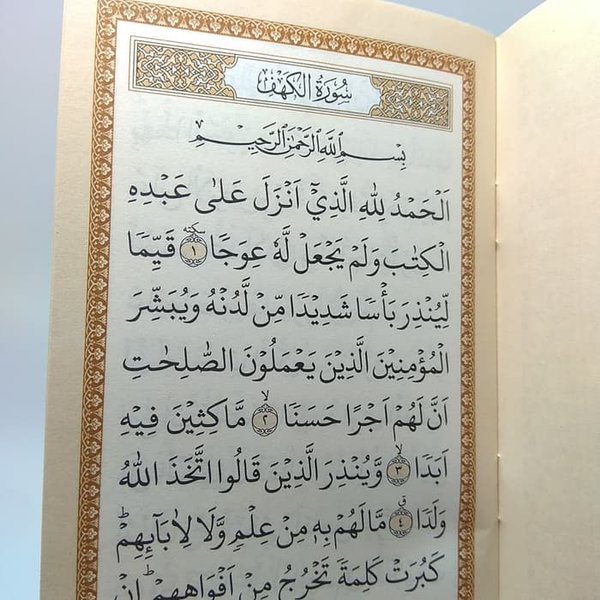 سُورَةُ الْكَهْفِ
بِسْمِ اللّٰهِ الرَّحْمٰنِ الرَّحِيْمِ
اَلْحَمْدُ لِلّٰهِ الَّذِيْٓ اَنْزَلَ عَلٰى عَبْدِهِ
الْكِتٰبَ وَلَمْ يَجْعَلْ لَّهٗ عِوَجًا سكته ١ قَيِّمًا
لِّيُنْذِرَ بَأْسًا شَدِيْدًا مِّنْ لَّدُنْهُ وَيُبَشِّرَ
الْمُؤْمِنِيْنَ الَّذِيْنَ يَعْمَلُوْنَ الصّٰلِحٰتِ
اَنَّ لَهُمْ اَجْرًا حَسَنًا ۙ ٢ مَّاكِثِيْنَ فِيْهِ
اَبَدًا ۙ ٣ وَّيُنْذِرَ الَّذِيْنَ قَالُوا اتَّخَذَ اللّٰهُ
وَلَدًا ق ٤ مَا لَهُمْ بِهٖ مِنْ عِلْمٍ وَّلَا لِاٰبَآئِهِمْ ۗ
كَبُرَتْ كَلِمَةً تَخْرُجُ مِنْ اَفْوَاهِهِمْ ۗ اِنْ